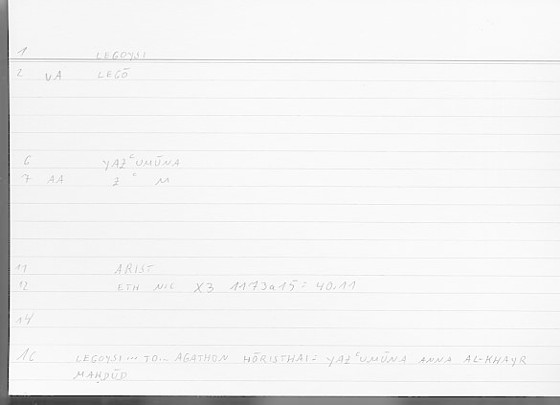 1 LEGOYSI
2 VA LEGŌ
6 YAZʿUMŪNA
7 AA Z ʿ M
11 ARIST
12 ETH NIC X3 1173a15 : 40.11
14
16 LEGOYSI ... TO... AGATHON HŌRISTHAI = YAZʿUMŪNA ANNA AL-KHAYR
MAḤDŪD